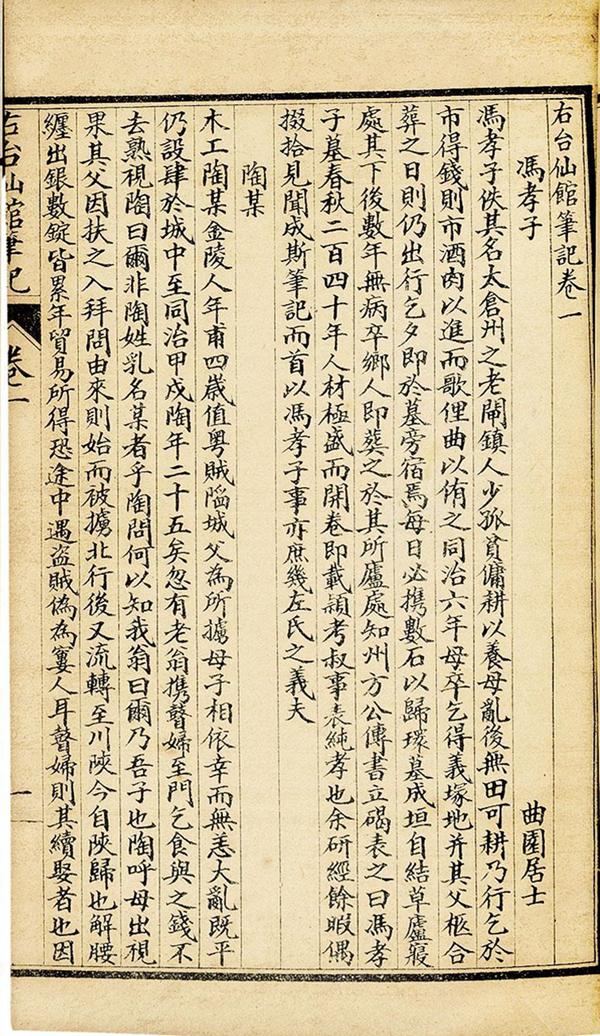 右台仙館筆記卷一
馮孝子 曲園居士
馮孝子佚其名太倉州之老閘鎮人少孤貧傭耕以養母亂後無田可耕乃行乞於
市得錢則市酒肉以進而歌俚曲以侑之同治六年母卒乞得義塚地并其父柩合
葬之日則仍出行乞夕即於墓旁宿焉每日必攜數石以歸環墓成垣自結草廬寢
處其下後數年無病卒鄉人即葬之於其所廬處知州方公傳書立碣表之曰馮孝
子墓春秋二百四十年人材極盛而開卷即載穎考叔事表純孝也余研經餘暇偶
掇拾見聞成斯筆記而首以馮孝子事亦庶幾左氏之義夫
陶某
木工陶某金陵人年甫四歲值粵賊陷城父為所擄母子相依幸而無恙大亂既平
仍設肆於城中至同治甲戌陶年二十五矣忽有老翁攜瞽婦至門乞食與之錢不
去熟視陶曰爾非陶姓乳名某者乎陶問何以知我翁曰爾乃吾子也陶呼母出視
果其父因扶之入拜問由來則始而被擄北行後又流轉至川陝今自陝歸也解腰
纏出銀數錠皆累年貿易所得恐途中遇盜賊偽為窶人耳瞽婦則其續娶者也因
右台仙館筆記
卷一
一